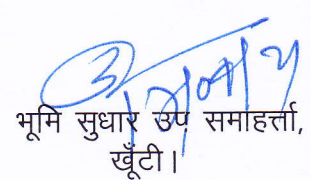 भूमि सुधार उप समाहर्त्ता,
खूँटी।